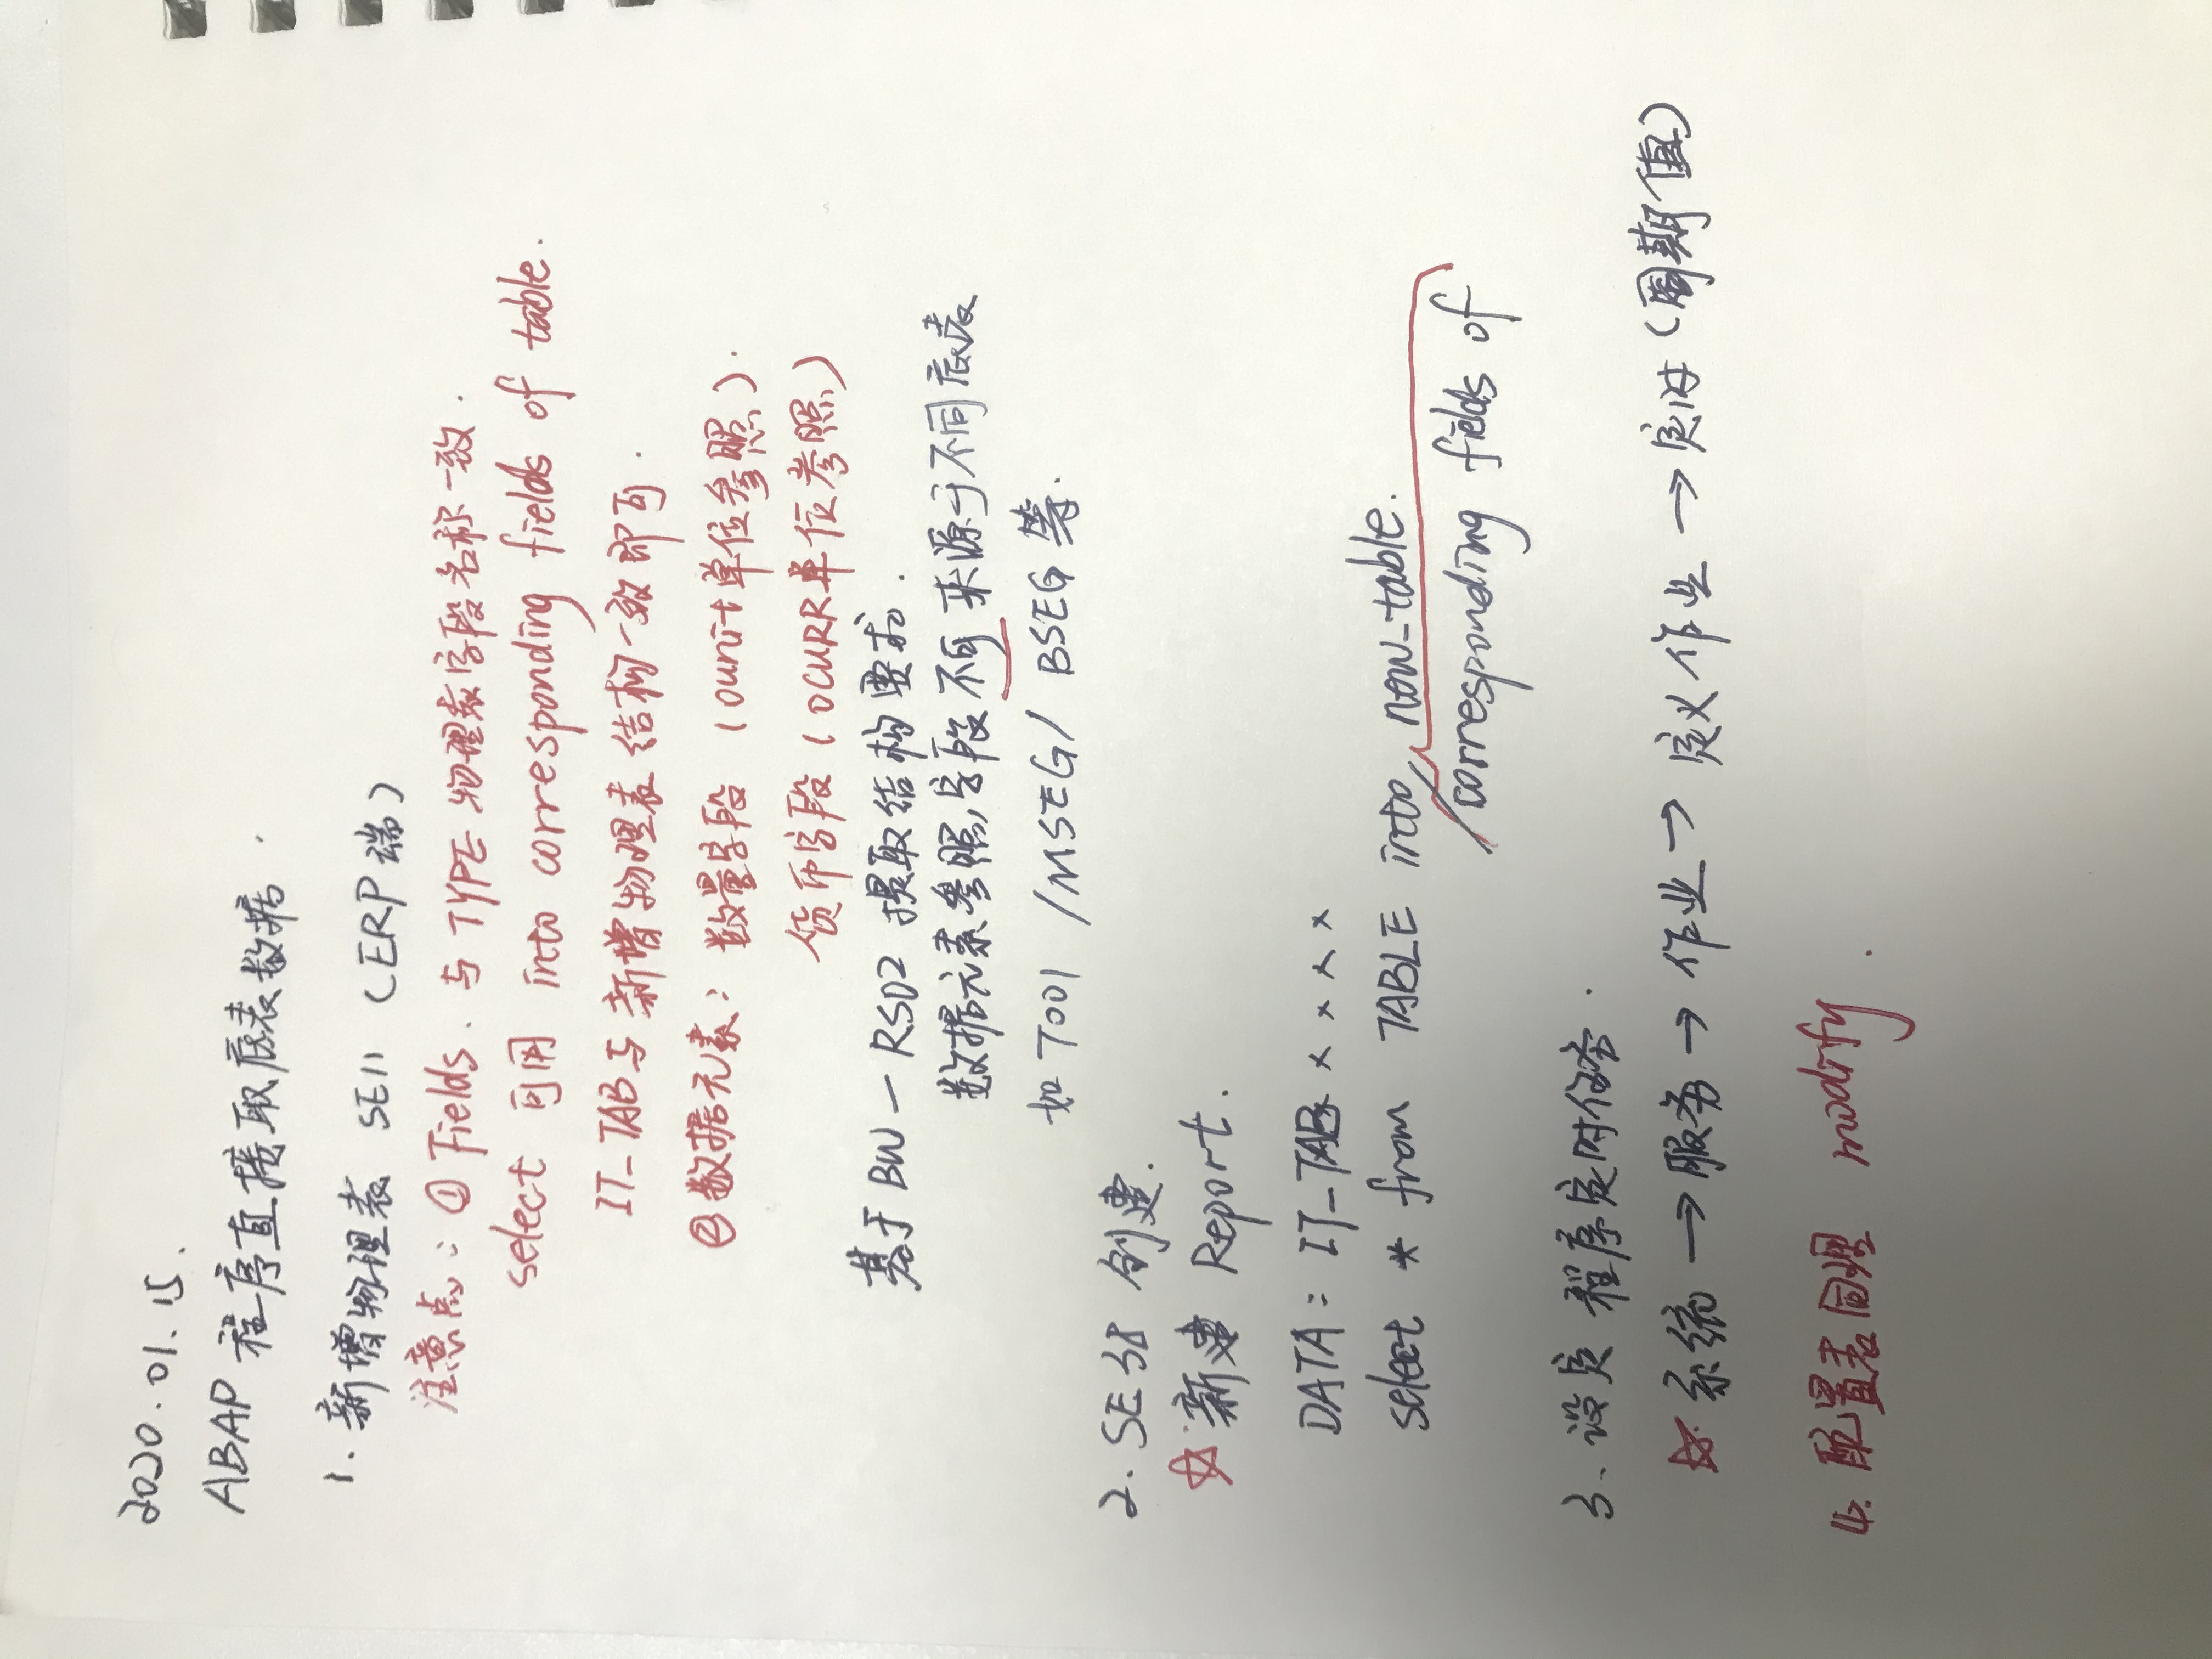 2020.01.15.
ABAP 程序直接取底表数据.
1. 新增物理表 SE11 (ERP端)
注意点: ① Fields. 与 TYPE 物理表字段名称一致.
select 可用 into corresponding fields of table.
IT_TAB 与 新增物理表 结构一致即可.
② 数据元素: 数量字段 (0unit单位参照).
货币字段 (0CURR单位参照)
基于BW — RSO2 提取结构要求.
数据元素参照,字段不可来源于不同底表
如 T001 /MSEG/ BSEG 等.
2. SE38 创建.
☆ 新建 Report.
DATA: IT_TAB x x x x
select * from TABLE into new_table.
/corresponding fields of
3. 设定 程序定时任务.
☆ 系统 → 服务 → 作业 → 定义作业 → 定时 (周期值)
4. 配置表同理 modify.